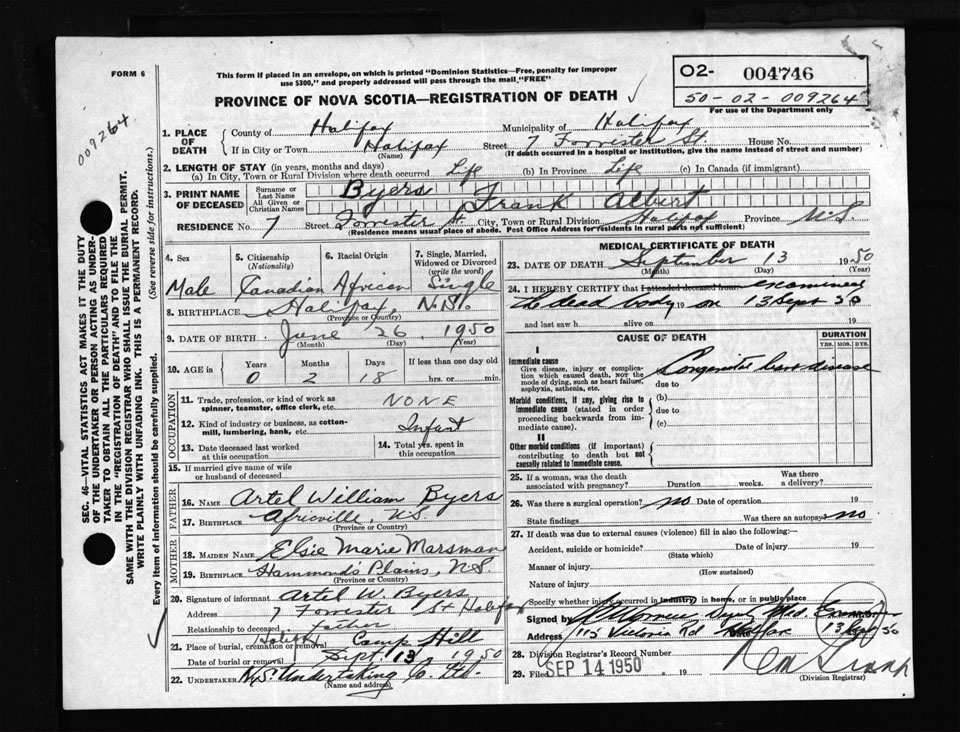 FORM 6
This form if placed in an envelope, on which is printed "Dominion Statistics—Free, penalty for improper
use $300," and properly addressed will pass through the mail, "FREE"
PROVINCE OF NOVA SCOTIA—REGISTRATION OF DEATH
O2- 004746
50-02-009264
For use of the Department only
009264
SEC. 46—VITAL STATISTICS ACT MAKES IT THE DUTY
OF THE UNDERTAKER OR PERSON ACTING AS UNDER-
TAKER TO OBTAIN ALL THE PARTICULARS REQUIRED
IN THE "REGISTRATION OF DEATH" AND TO FILE THE
SAME WITH THE DIVISION REGISTRAR WHO SHALL ISSUE THE BURIAL PERMIT.
WRITE PLAINLY WITH UNFADING INK. THIS IS A PERMANENT RECORD.
Every item of information should be carefully supplied. (See reverse side for instructions.)
1. PLACE OF DEATH
County of Halifax Municipality of Halifax
If in City or Town Halifax Street 7 Forrester St. House No.
(Name) (If death occurred in a hospital or institution, give the name instead of street and number)
2. LENGTH OF STAY (in years, months and days)
(a) In City, Town or Rural Division where death occurred Life (b) In Province Life (c) In Canada (if immigrant)
3. PRINT NAME OF DECEASED
Surname or Last Name Byers
All Given or Christian Names Frank Albert
RESIDENCE No. 7 Street Forrester St. City, Town or Rural Division Halifax Province N.S.
(Residence means usual place of abode. Post Office Address for residents in rural parts not sufficient)
4. Sex 5. Citizenship (Nationality) 6. Racial Origin 7. Single, Married, Widowed or Divorced (write the word)
Male Canadian African Single
8. BIRTHPLACE Halifax N.S.
(Province or Country)
9. DATE OF BIRTH June 26 1950
(Month) (Day) (Year)
10. AGE in Years Months Days If less than one day old
0 2 18 hrs. or min.
OCCUPATION
11. Trade, profession, or kind of work as
spinner, teamster, office clerk, etc. NONE
12. Kind of industry or business, as cotton-
mill, lumbering, bank, etc. Infant
13. Date deceased last worked at this occupation 14. Total yrs. spent in this occupation
15. If married give name of wife
or husband of deceased
FATHER
16. NAME Artel William Byers
17. BIRTHPLACE Africville, N.S.
(Province or Country)
MOTHER
18. MAIDEN NAME Elsie Marie Marsman
19. BIRTHPLACE Hammond's Plains, N.S.
(Province or Country)
20. Signature of informant Artel W. Byers
Address 7 Forrester St Halifax
Relationship to deceased father
21. Place of burial, cremation or removal Halifax Camp Hill
Date of burial or removal Sept. 13, 1950
22. UNDERTAKER N.S. Undertaking Co. Ltd.
(Name and address)
MEDICAL CERTIFICATE OF DEATH
23. DATE OF DEATH September 13 1950
(Month) (Day) (Year)
24. I HEREBY CERTIFY that I attended deceased from examined
the dead body 19 on 13 Sept 50
and last saw h alive on 19
CAUSE OF DEATH DURATION
YRS. MOS. DYS.
I
Immediate cause
Give disease, injury or complica-
tion which caused death, NOT the
mode of dying, such as heart failure,
asphyxia, asthenia, etc.
(a) Congenital heart disease
due to
Morbid conditions, if any, giving rise to
immediate cause (stated in order
proceeding backwards from im-
mediate cause).
(b)
due to
(c)
II
Other morbid conditions (if important)
contributing to death but not
causally related to immediate cause.
25. If a woman, was the death
associated with pregnancy? Duration weeks. Was there a delivery?
26. Was there a surgical operation? no Date of operation 19
State findings Was there an autopsy? no
27. If death was due to external causes (violence) fill in also the following:
Accident, suicide or homicide? Date of injury 19
(State which)
Manner of injury
(How sustained)
Nature of injury
Specify whether injury occurred in industry, in home, or in public place
Signed by Med.
Address 115 Victoria Rd Halifax 13 Sept 50
28. Division Registrar's Record Number
29. Filed SEP 14 1950 19
(Division Registrar)